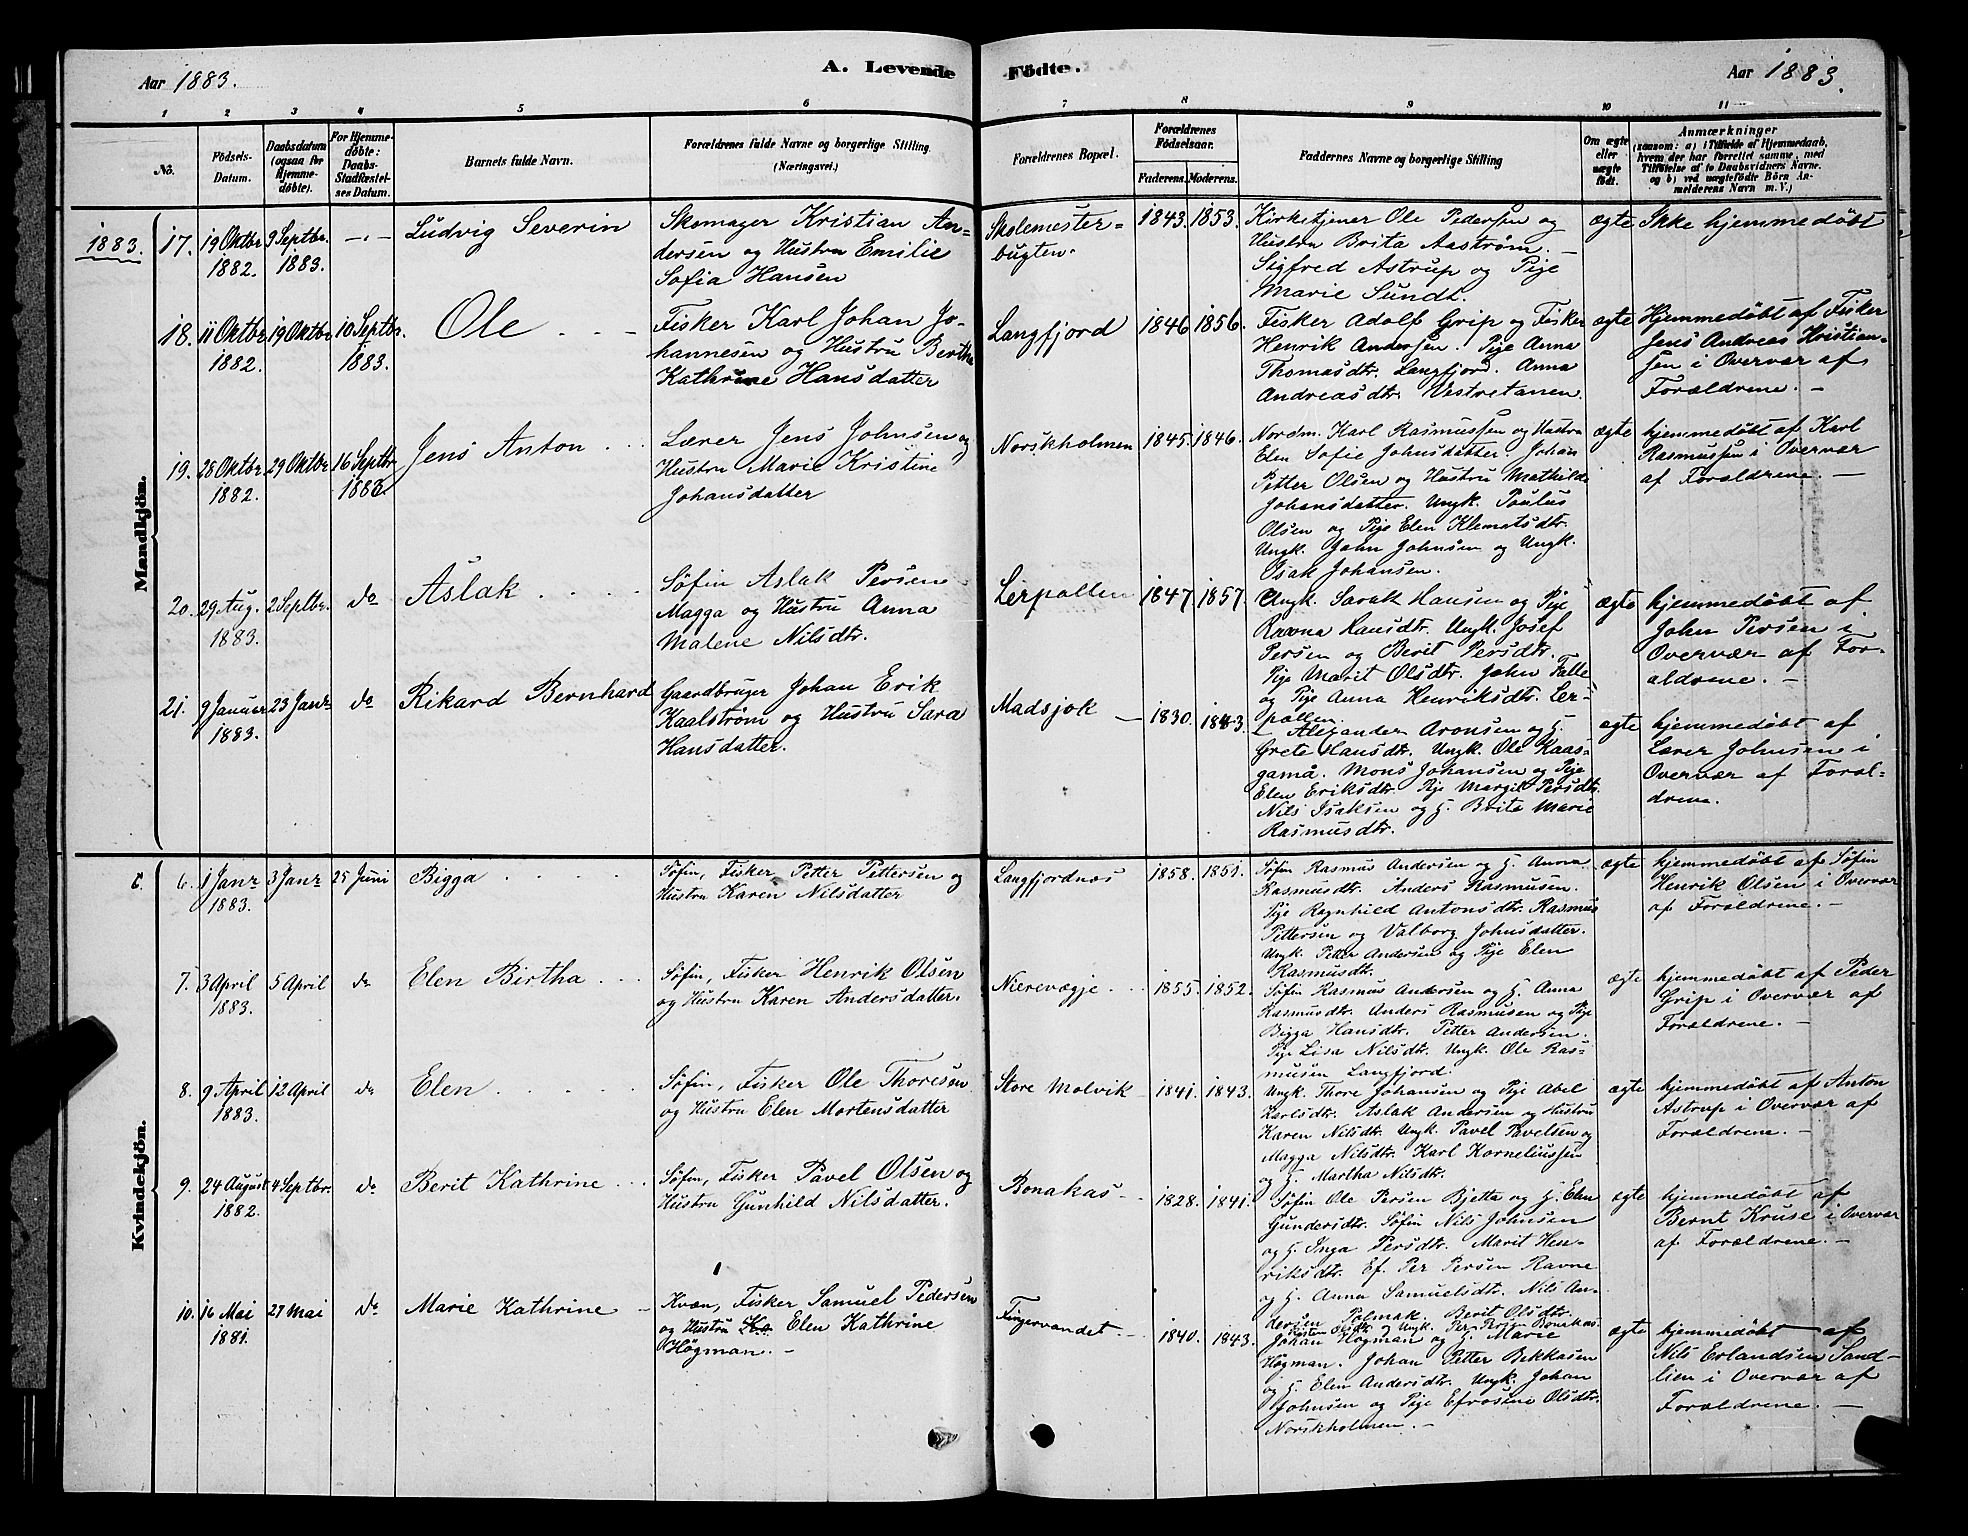 Aar 1883.
A. Levende Födte.
Aar 1883.
1 2 3 4 5 6 7 8 9 10 11
No.
Födsels-Datum.
Daabsdatum (ogsaa for Hjemmedöbte).
For Hjemmedöbte: Daabs-Stadfæstelses Datum.
Barnets fulde Navn.
Forældrenes fulde Navne og borgerlige Stilling.
(Næringsvei.)
Forældrenes Bopæl.
Forældrenes Födselsaar.
Faderens. Moderens.
Faddernes Navne og borgerlige Stilling
Om ægte eller uægte födt.
Anmærkninger
(saasom: a) i Tilfælde af Hjemmedaab,
hvem der har forrettet samme, med
Tilföielse af to Daabsvidners Navne.
og b) ved uægtefödte Börn An-
melderens Navn m.V.)
Mandkjön.
1883. 17. 19 Oktbr 1882. 9 Septbr. 1883. -"-
Ludvig Severin
Skomager Kristian An-
dersen og Hustru Emilie
Sofia Hansen
Skolemester-
bugten.
1843. 1853.
Kirketjener Ole Pedersen og
Hustru Brita Aaström. -
Sigfred Astrup og Pige
Marie Sundt.
ægte
Ikke hjemmedöbt
18. 11 Oktbr 1882. 19 Oktbr 10 Septbr. 1883.
Ole
Fisker Karl Johan Jo-
hannesen og Hustru Bertha
Kathrine Hansdatter
Langfjord
1846 1856.
Fisker Adolf Grip og Fisker
Henrik Andersen. Pige Anna
Thomasdtr. Langfjord. Anna
Andreasdtr. Vestretanen.
ægte
Hjemmedöbt af Fisker
Jens Andreas Kristian-
sen i Overvær af
Forældrene. -
19. 28 Oktbr. 1882. 29 Oktbr 16 Septbr 1883.
Jens Anton
Lærer Jens Johnsen og
Hustru Marie Kristine
Johansdatter
Norskholmen
1845. 1846.
Nordm. Karl Rasmussen og Hustru
Elen Sofie Johnsdatter. Johan
Petter Olsen og Hustru Mathilde
Johansdatter. Ungk. Paulus
Olsen og Pige Elen Klemetsdtr.
Ungk. John Johnsen og Ungk.
Isak Johansen.
ægte
hjemmedöbt af Karl
Rasmussen i Overvær
af Forældrene. -
20. 29 Aug. 1883. 2 Septbr. do
Aslak
Söfin Aslak Persen
Magga og Hustru Anna
Malene Nilsdtr.
Lerpollen
1847. 1857.
Ungk. Sarak Hansen og Pige
Ravna Hansdtr. Ungk. Josef
Persen og Berit Persdtr.
Pige Marit Olsdtr. John Falle
og Pige Anna Henriksdtr. Ler-
pollen.
ægte
hjemmedöbt af
John Persen i
Overvær af For-
ældrene. -
21. 9 Januar 1883. 23 Janr do
Rikard Bernhard
Gaardbruger Johan Erik
Kaalström og Hustru Sara
Hansdatter.
Madsjok
1830. 1843.
Alexander Aronsen og H.
Grete Hansdtr. Ungk. Ole Kaas-
gamå. Mons Johansen og Pige
Elen Eriksdtr. Pige Margit Persdtr.
Nils Isaksen og H. Brita Marie
Rasmusdtr.
ægte
hjemmedöbt af
Lærer Johnsen i
Overvær af Foræl-
drene.
Kvindekjön.
6. 1 Janr 1883. 3 Janr 25 Juni
Bigga
Söfin, Fisker Petter Pettersen og
Hustru Karen Nilsdatter
Langfjordnæs
1858. 1851.
Söfin Rasmus Andersen og H. Anna
Rasmusdtr. Anders Rasmusen.
Pige Ragnhild Antonsdtr. Rasmus
Pettersen og Valborg Johnsdatter.
Ungk. Petter Andersen og Pige Elen
Rasmusdtr.
ægte
hjemmedöbt af Söfin
Henrik Olsen i Overvær
af Forældrene. -
7. 3 April 1883. 5 April do
Elen Birtha
Söfin, Fisker Henrik Olsen
og Hustru Karen Andersdatter.
Nierevægje
1855. 1852.
Söfin Rasmus Andersen og H. Anna
Rasmusdtr. Anders Rasmusen og Pige
Bigga Hansdtr. Petter Andersen.
Pige Lisa Nilsdtr. Ungk. Ole Ras-
musen Langfjord.
ægte
hjemmedöbt af Peder
Grip i Overvær af
Forældrene. -
8. 9 April 1883. 12 April do
Elen
Söfin, Fisker Ole Thoresen
og Hustru Elen Mortensdatter
Store Molvik
1841. 1843.
Ungk. Thore Johansen og Pige Abel
Karlsdtr. Aslak Andersen og Hustru
Karen Nilsdtr. Ungk. Pavel Pavelsen og
Magga Nilsdtr. Karl Korneliussen
og H. Martha Nilsdtr.
ægte
hjemmedöbt af Anton
Astrup i Overvær af
Forældrene. -
9. 24 August 1882. 4 Septbr. do
Berit Kathrine
Söfin, Fisker Pavel Olsen og
Hustru Gunhild Nilsdatter.
Bonakas
1828. 1841.
Söfin Ole Persen Bjetta og H. Elen
Gundersdtr. Söfin Nils Johnsen
og H. Inga Persdtr. Marit Hen-
riksdtr. Ef. Per Persen Ravne
og H. Anna Samuelsdtr. Nils An-
dersen Polmak Berit Olsdtr.
ægte
hjemmedöbt af
Bernt Kruse i Overvær
af Forældrene. -
10. 16 Mai 1881. 27 Mai do
Marie Kathrine
Kvæn, Fisker Samuel Pedersen
og Hustru Elen Kathrine
Högman. -
Fingervandet.
1840. 1843.
Johan Högman og H. Marie
Högman. Johan Petter Bekkasen
og H. Elen Andersdtr. Ungk. Johan
Johnsen og Pige Efrosine Olsdtr.
Norskholmen. -
ægte
hjemmedöbt af
Nils Erlandsen Sand-
lien i Overvær af
Forældrene. -